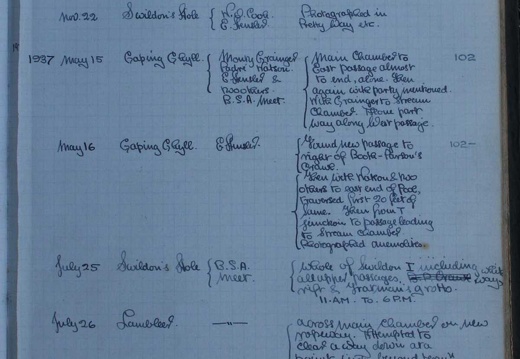 Nov. 22 Swildon's Hole { H.D. Cook Photographed in
E. Hensler. Pretty Way etc.
1937 May 15 Gaping Ghyll. Moury Grainger Main Chamber to 102
Padre Watson. East Passage almost
E. Hensler & to end, alone. Then
again with party mentioned.
B.S.A. Meet. With Grainger to Stream
Chamber. Then part
way along West passage.
May 16 Gaping Ghyll. E. Hensler. Found new passage to 102
right of Booth-Parson's
Crawl.
Then with Watson & two
others to east end of Pool,
traversed first 20 feet of
same. Then from T
junction to passage leading
to Stream Chamber
Photographed anemolites.
July 25 Swildon's Hole { B.S.A. Whole of Swildon I including
Meet. all upper passages, ways
rift & grotto.
11 A.M. TO. 6 P.M.
July 26 Lamb Leer. — " — across main chamber on new
ropeway. Attempted to
clear a way down at a
point